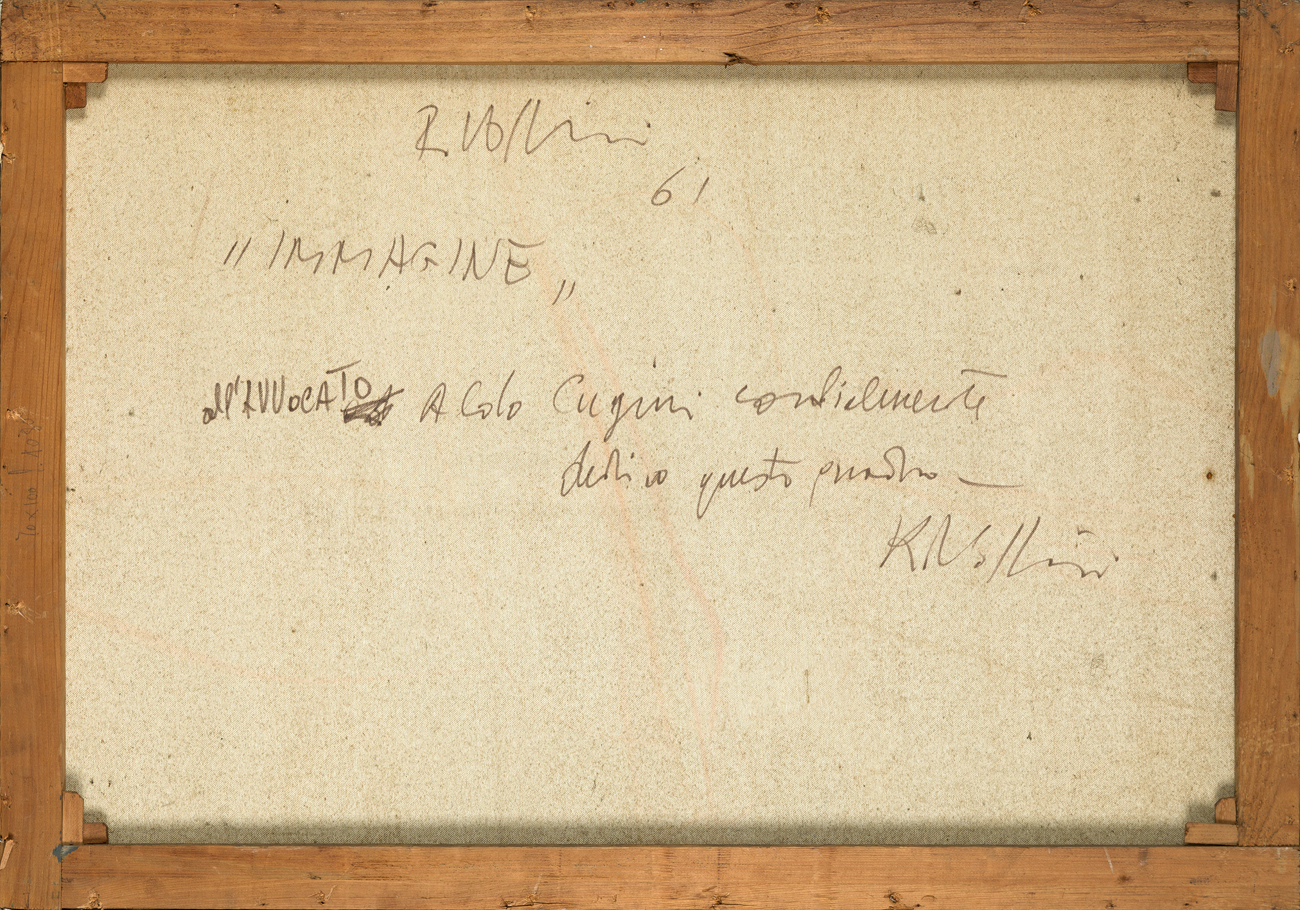 R Vollini
61
"IMMAGINE„
all'AVVOCATO Aldo Cugini cordialmente
dedico questo quadro —
R Vollini
70x100